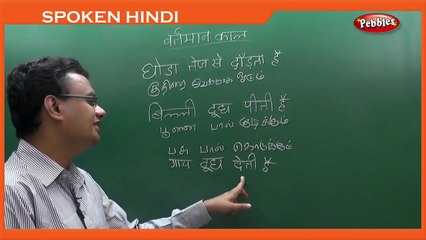 SPOKEN HINDI
Pebbles
वर्तमान काल
घोडा तेज से दौडता है
குதிரை வேகமாக ஓடும்
बिल्ली दूध पीती है
பூனை பால் குடிக்கும்
பசு பால் கொடுக்கும்
गाय दूध देती है